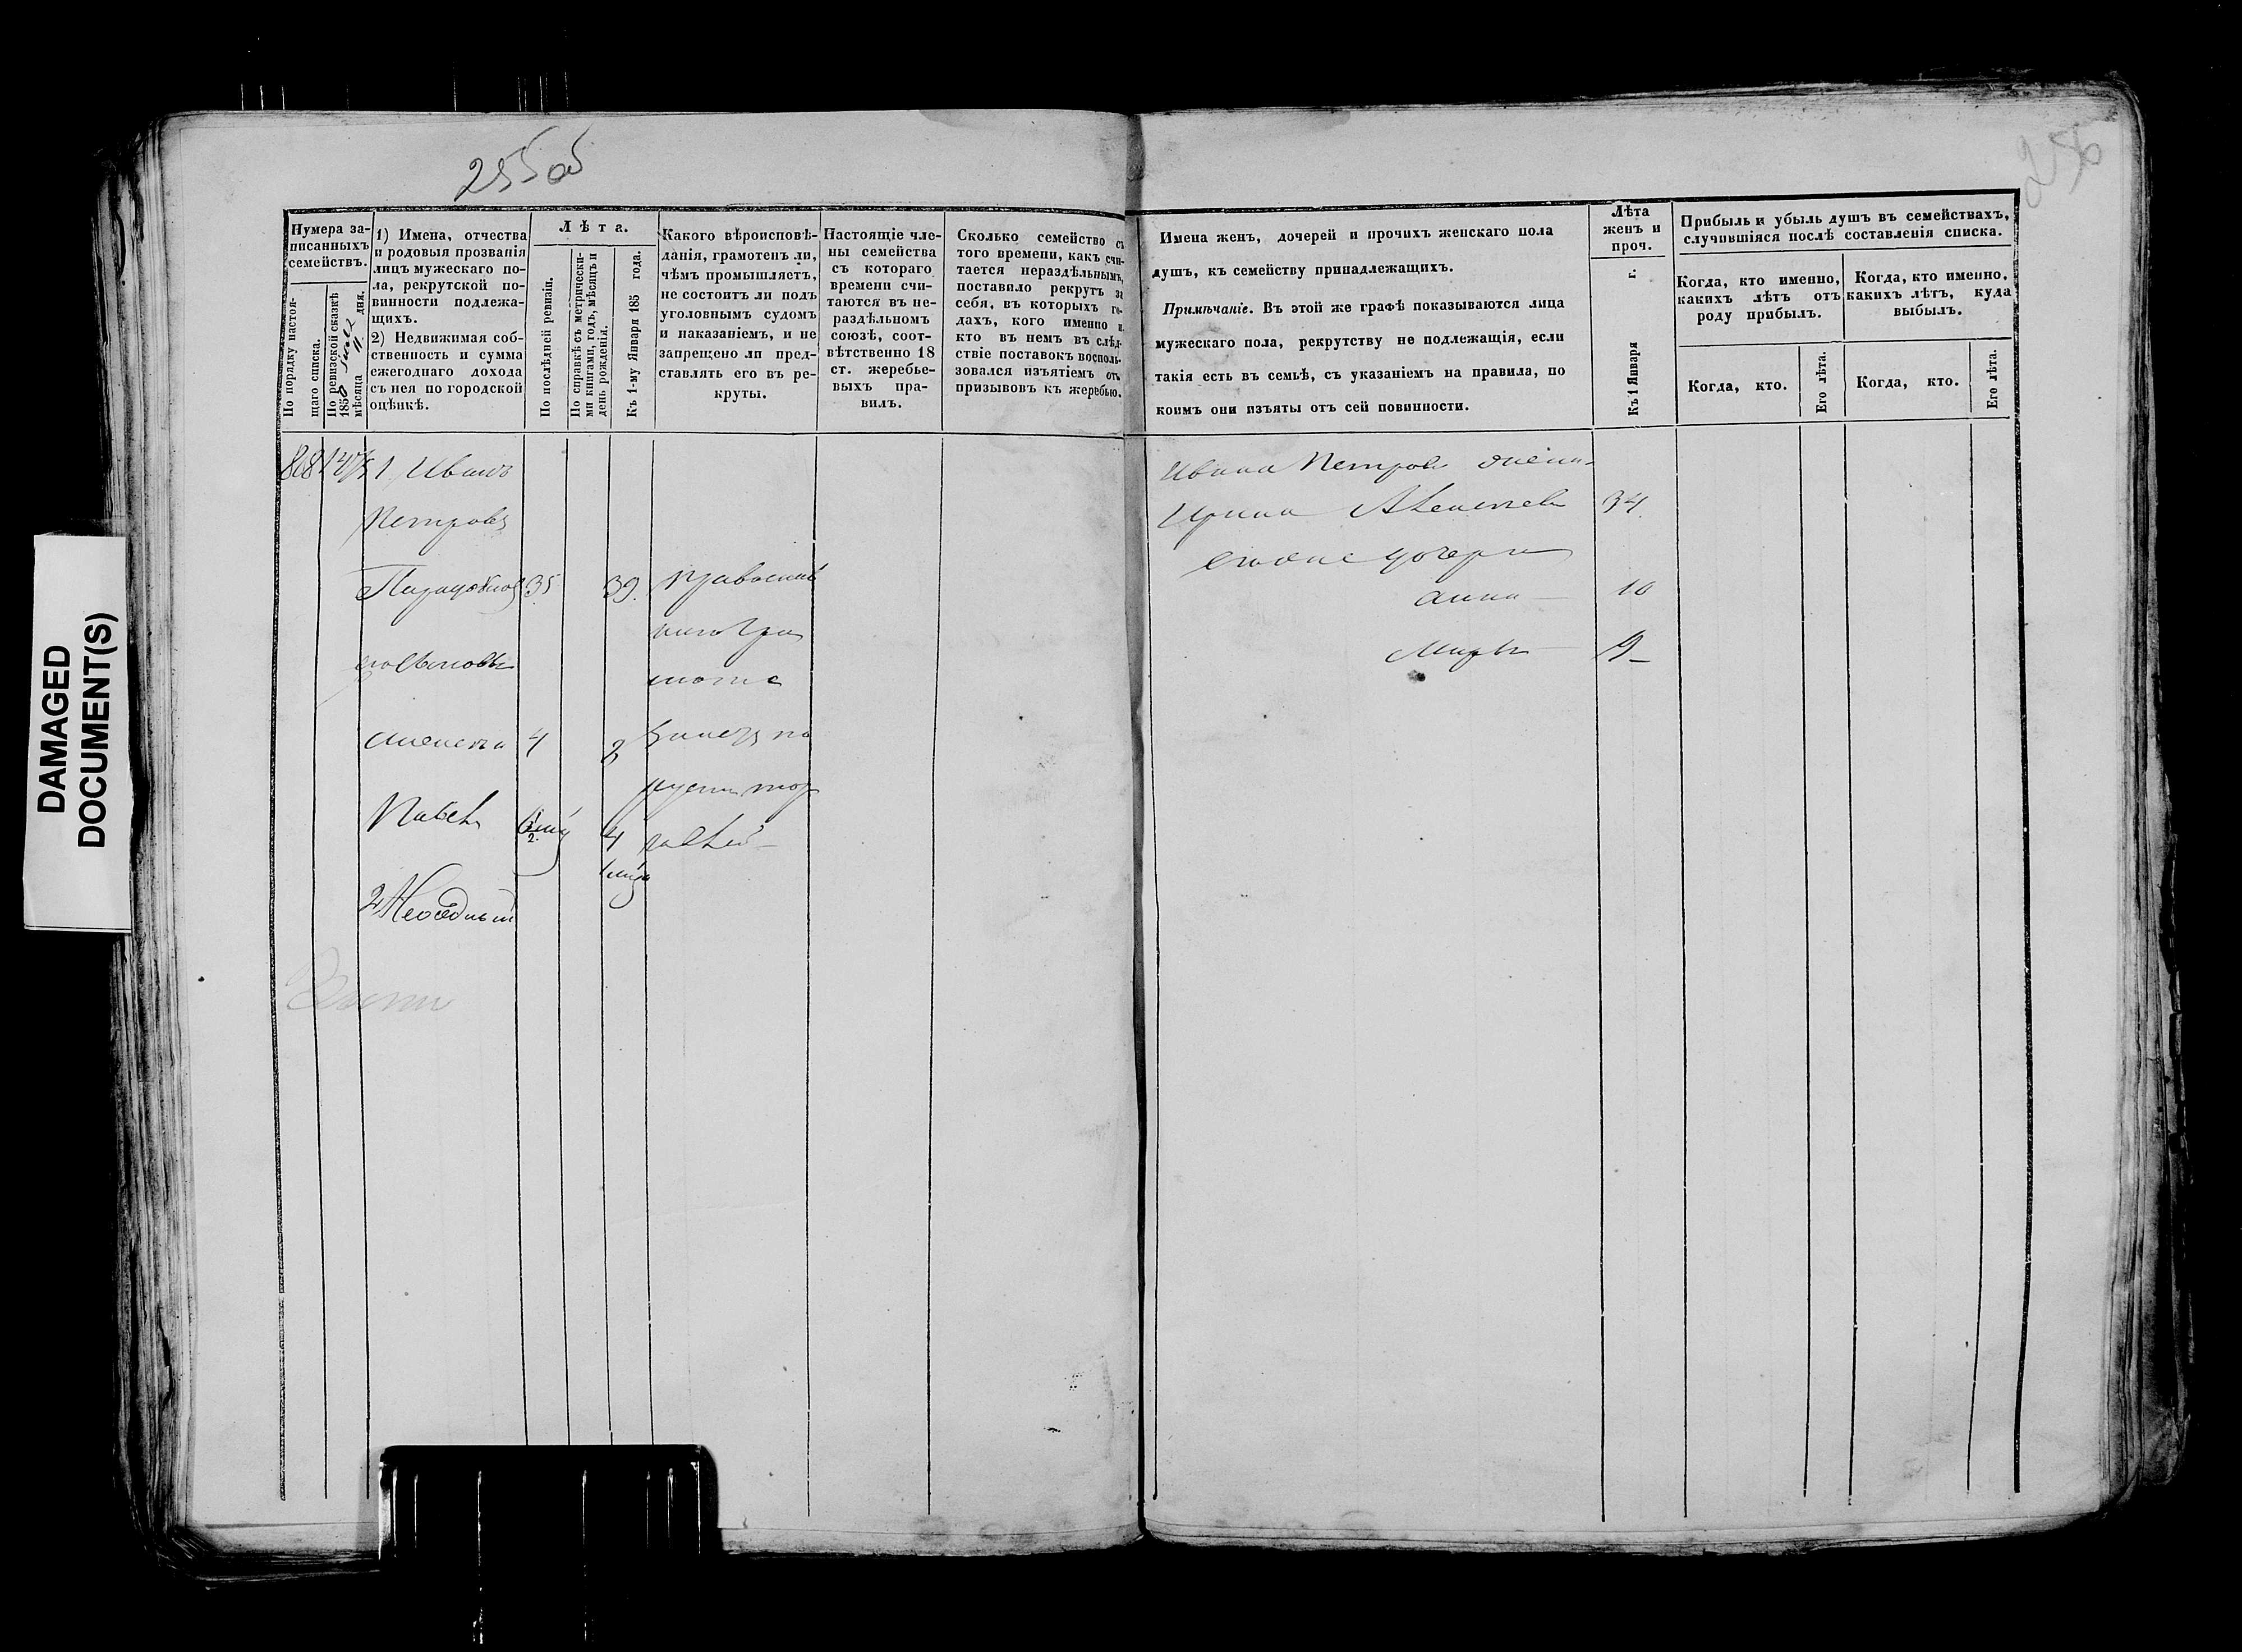 255 об
256
DAMAGED
DOCUMENT(S)
Нумера за-
писанныхъ
семействъ.
По порядку настоя-
щаго списка.
По ревизской сказкѣ
1850
мѣсяца дня.
1) Имена, отчества
и родовыя прозванія
лицъ мужескаго по-
ла, рекрутской по-
винности подлежа-
щихъ.
2) Недвижимая соб-
ственность и сумма
ежегоднаго дохода
съ нея по городской
оцѣнкѣ.
Лѣта.
По послѣдней ревизіи.
По справкѣ съ метрически-
ми книгами, годъ, мѣсяцъ и
день рожденія.
Къ 1-му Января 185 года.
Какого вѣроисповѣ-
данія, грамотенъ ли,
чѣмъ промышляетъ,
не состоитъ ли подъ
уголовнымъ судомъ
и наказаніемъ, и не
запрещено ли пред-
ставлять его въ ре-
круты.
Настоящіе чле-
ны семейства
съ котораго
времени счи-
таются въ не-
раздѣльномъ
союзѣ, соот-
вѣтственно 18
ст. жеребье-
выхъ пра-
вилъ.
Сколько семейство съ
того времени, какъ счи-
тается нераздѣльнымъ,
поставило рекрутъ за
себя, въ которыхъ го-
дахъ, кого именно и
кто въ немъ въ слѣд-
ствіе поставокъ восполь-
зовался изъятіемъ отъ
призывовъ къ жеребью.
Имена женъ, дочерей и прочихъ женскаго пола
душъ, къ семейству принадлежащихъ.
Примѣчаніе. Въ этой же графѣ показываются лица
мужескаго пола, рекрутству не подлежащія, если
такія есть въ семьѣ, съ указаніемъ на правила, по
коимъ они изъяты отъ сей повинности.
Лѣта
женъ и
проч.
Къ 1 Января г.
Прибыль и убыль душъ въ семействахъ,
случившіяся послѣ составленія списка.
Когда, кто именно,
какихъ лѣтъ отъ
роду прибылъ.
Когда, кто именно,
какихъ лѣтъ, куда
выбылъ.
Когда, кто.
Его лѣта.
Когда, кто.
Его лѣта.
1 Иванъ
Петровъ
35 39 православ
его сыновья
4
Павелъ 4
2 Неоседлый
Ивана Петрова жена
Ирина 34
дочери
Анна 10
Марья